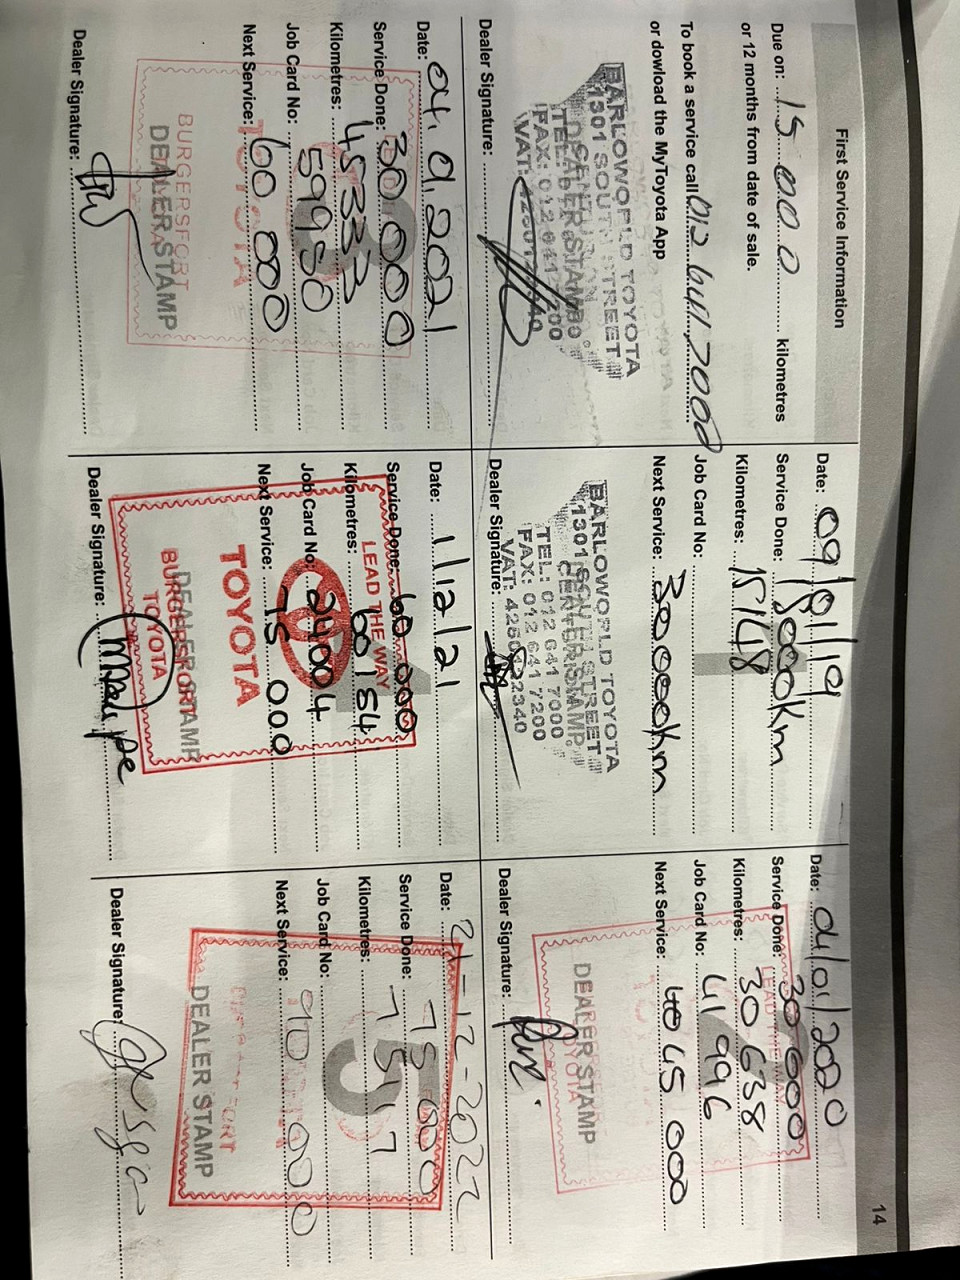 14
First Service Information
Due on: 15 000 kilometres
or 12 months from date of sale.
To book a service call 012 641 7000
or dowload the MyToyota App
BARLOWORLD TOYOTA
1301 SOUTH STREET
CENTURION
DEALER STAMP
TEL: 012 641 7000
FAX: 012 641 7200
VAT:
Dealer Signature:
Date: 09/01/19
Service Done: 15000km
Kilometres: 15148
Job Card No:
Next Service: 30 000km
1
BARLOWORLD TOYOTA
1301 SOUTH STREET
CENTURION
DEALER STAMP
TEL: 012 641 7000
FAX: 012 641 7200
VAT:
Dealer Signature:
Date: 01/2020
Service Done: 30 000
Kilometres: 30 638
Job Card No: 41 996
Next Service: 45 000
LEAD THE WAY
DEALER STAMP
TOYOTA
Dealer Signature:
Date: 04.09.2021
Service Done: 30 000
Kilometres: 45333
Job Card No: 59950
Next Service: 60 000
3
TOYOTA
BURGERSFORT
DEALER STAMP
Dealer Signature:
Date: 1/12/21
Service Done: 60 000
Kilometres: 60 154
Job Card No: 24004
Next Service: 75 000
4
LEAD THE WAY
TOYOTA
DEALER STAMP
BURGERSFORT
TOYOTA
Dealer Signature:
Date: 21-12-2022
Service Done: 75 000
Kilometres: 7 5 1 7
Job Card No:
Next Service: 90 000
5
DEALER STAMP
Dealer Signature: